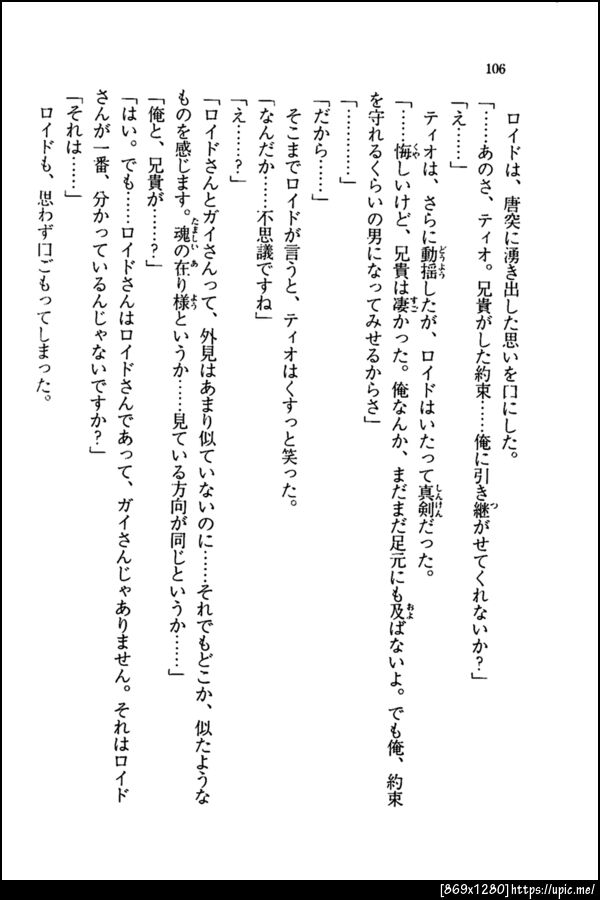 106
ロイドは、唐突に湧き出した思いを口にした。
「……あのさ、ティオ。兄貴がした約束……俺に引き継がせてくれないか？」
「え……」
ティオは、さらに動揺したが、ロイドはいたって真剣だった。
「……悔しいけど、兄貴は凄かった。俺なんか、まだまだ足元にも及ばないよ。でも俺、約束
を守れるくらいの男になってみせるからさ」
「…………」
「だから……」
そこまでロイドが言うと、ティオはくすっと笑った。
「なんだか……不思議ですね」
「え……？」
「ロイドさんとガイさんって、外見はあまり似ていないのに……それでもどこか、似たような
ものを感じます。魂の在り様というか……見ている方向が同じというか……」
「俺と、兄貴が……？」
「はい。でも……ロイドさんはロイドさんであって、ガイさんじゃありません。それはロイド
さんが一番、分かっているんじゃないですか？」
「それは……」
ロイドも、思わず口ごもってしまった。
[869x1280]https://upic.me/